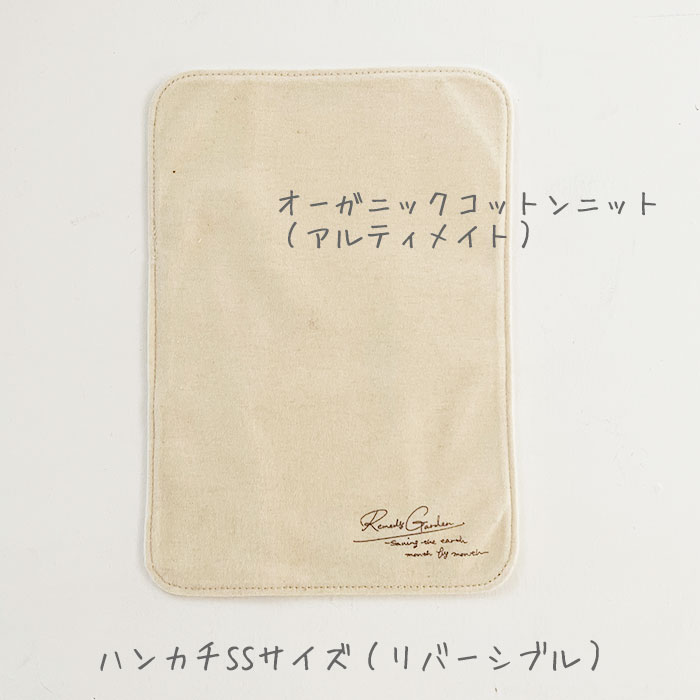 オーガニックコットンニット
（アルティメイト）
Remedy Garden
Saving the earth
month by month
ハンカチSSサイズ（リバーシブル）